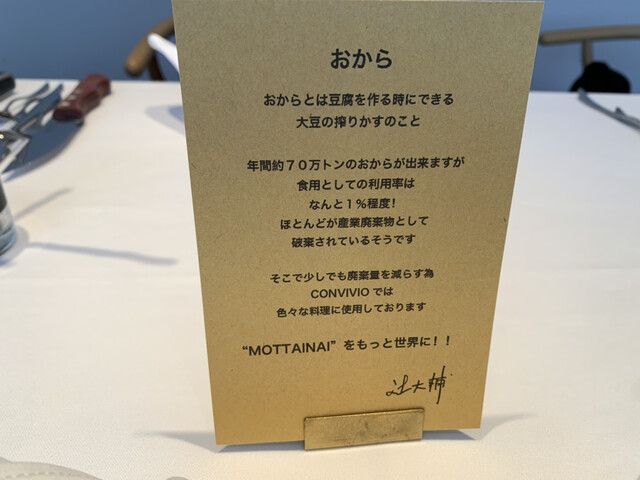 おから
おからとは豆腐を作る時にできる
大豆の搾りかすのこと
年間約７０万トンのおからが出来ますが
食用としての利用率は
なんと１％程度！
ほとんどが産業廃棄物として
破棄されているそうです
そこで少しでも廃棄量を減らす為
CONVIVIOでは
色々な料理に使用しております
“MOTTAINAI”をもっと世界に！！
辻大輔